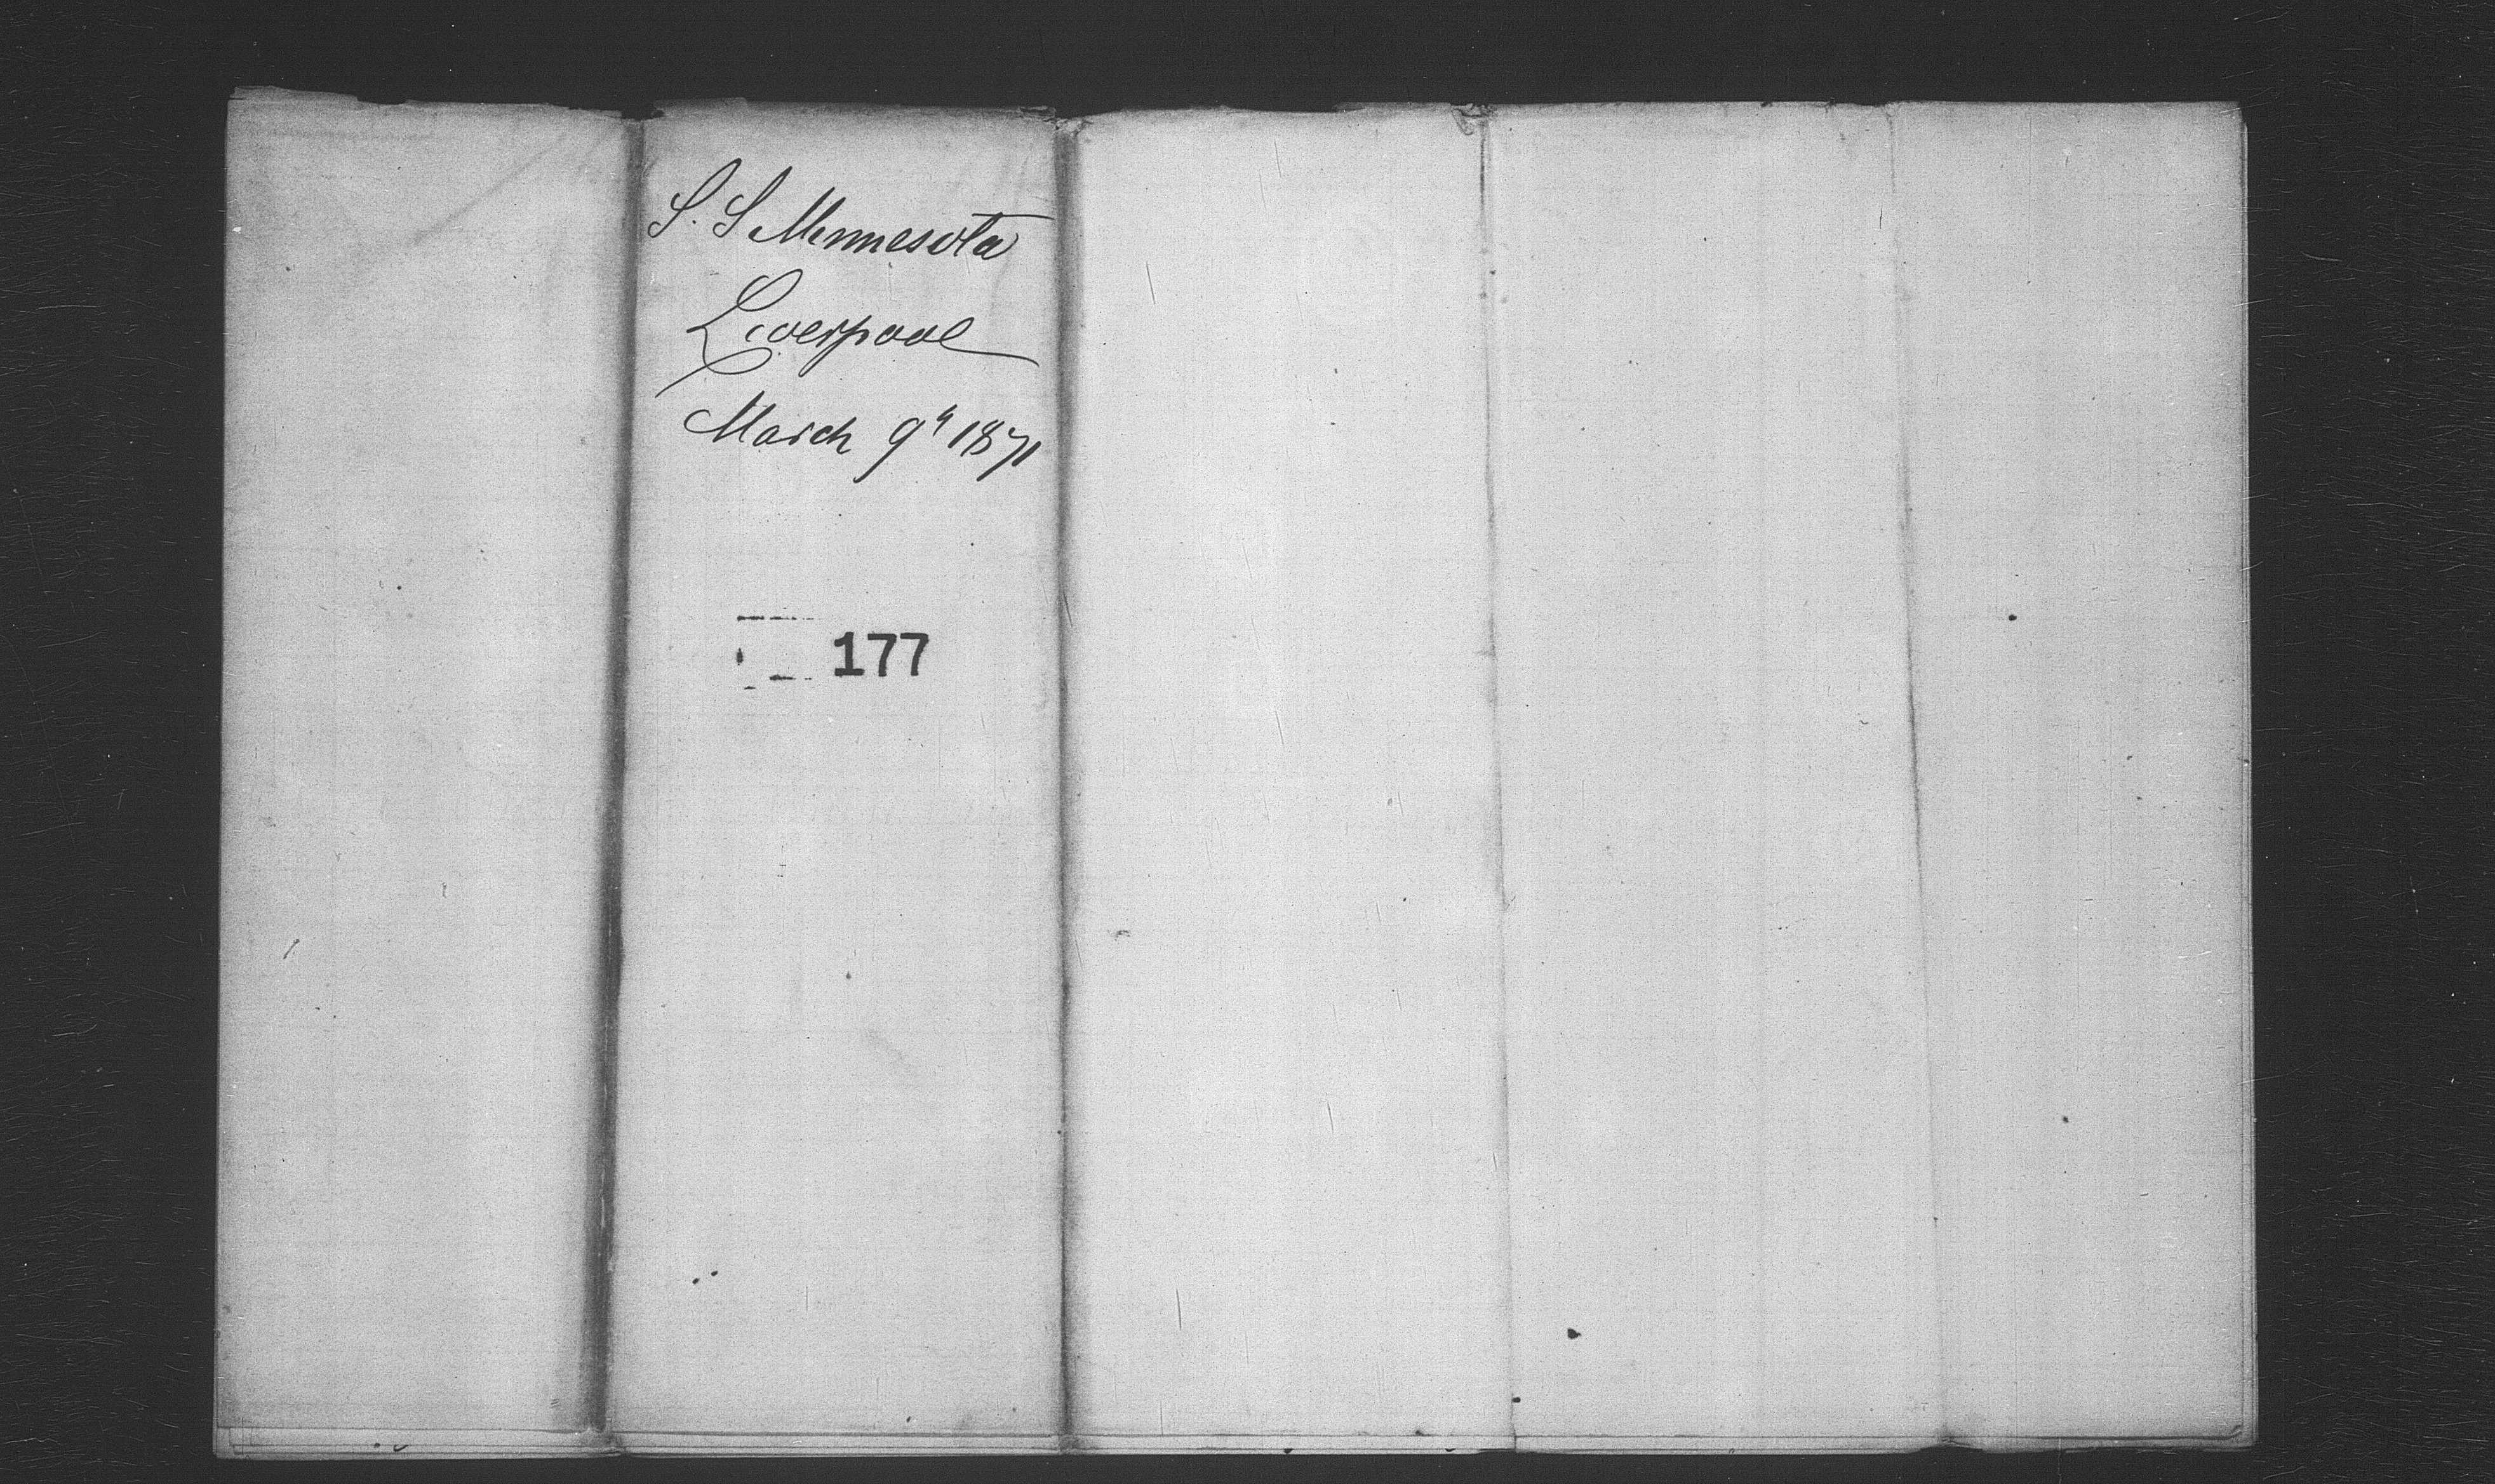 S. S Minnesota
Liverpool
March 9th 1871
177